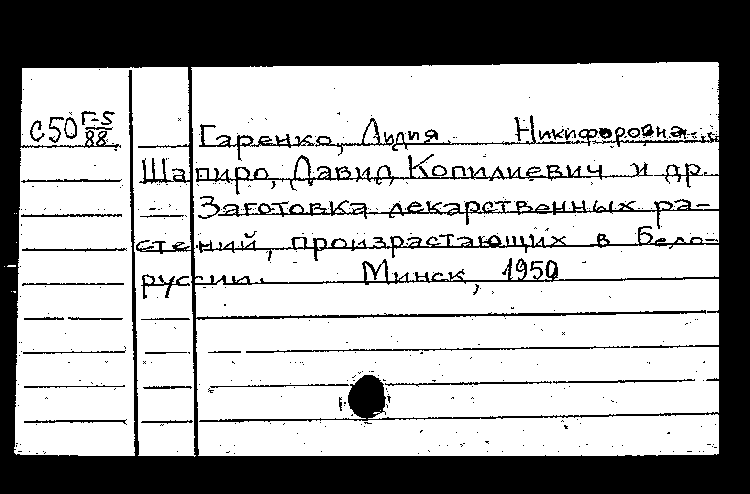 С50 Г-5/88 Гаренко, Лидия Никифоровна.
Шапиро, Давид Копилиевич и др.
– Заготовка лекарственных ра-
стений, произрастающих в Бело-
руссии. Минск, 1950